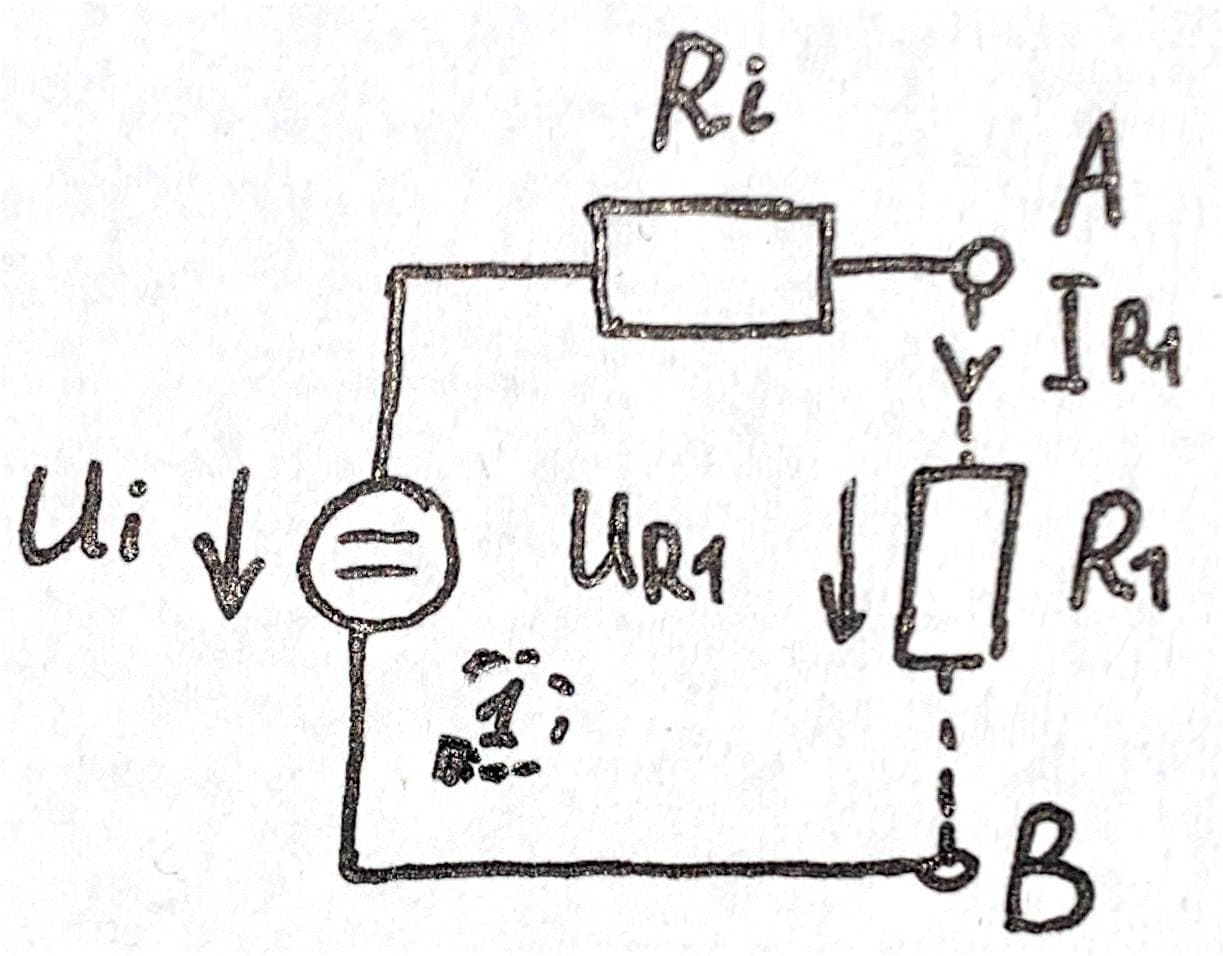 Ri
A
IR1
Ui
UR1
R1
1
B